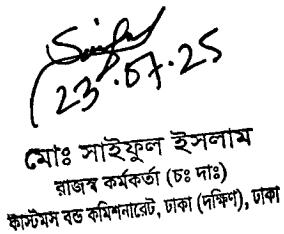 23.07.25
মোঃ সাইফুল ইসলাম
রাজস্ব কর্মকর্তা (চঃ দাঃ)
কাস্টমস বন্ড কমিশনারেট, ঢাকা (দক্ষিণ), ঢাকা